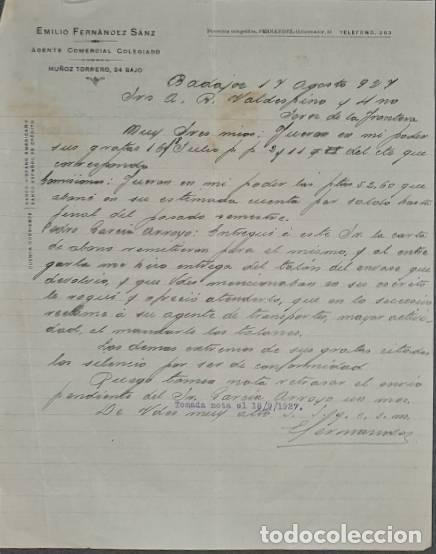 EMILIO FERNÁNDEZ SÁNZ
AGENTE COMERCIAL COLEGIADO
MUÑOZ TORRERO, 24 BAJO
Dirección telegráfica, FERNANDEZ TELÉFONO, 263
Badajoz 17 Agosto 927
Srs A. R. Valdespino y Hno
Jerez de la Frontera
Muy Sres mios: Fueron en mi poder
sus gratas 16 Julio p. p. 2 y 11 del cte que
correspondo
Comisiones: Fueron en mi poder las ptas 52,60 que
abono en su estimada cuenta por saldo hasta
final del pasado semestre.
Pedro García Arroyo: Entregué a este Sr. la carta
de abono remitieron para el mismo, y al entre
garla me hizo entrega del talón del envase que
devolvió, y que Vdes mencionaban en su escrito
le rogué y ofreció atenderlo, que en lo sucesivo
reclame á su agente de transportes, mayor activi
dad, el mandarle los talones.
Los demas extremos de sus gratas citadas
los silencio por ser de conformidad
Ruego tomen nota retrasar el envio
pendiente del Sr. García Arroyo un mes.
De Vdes muy atto s. s. q. e. s. m.
Tomada nota el 18/9/1927.